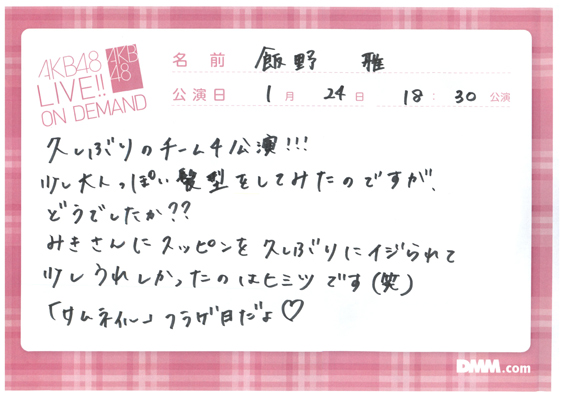 AKB48
LIVE!!
ON DEMAND
AKB
48
名 前 飯野 雅
公演日 1月 24日 18:30公演
久しぶりのチーム4公演!!!
少し大人っぽい髪型をしてみたのですが、
どうでしたか??
みきさんにスッピンを久しぶりにイジられて
少しうれしかったのはヒミツです(笑)
「サムネイル」フラゲ日だよ♡
DMM.com